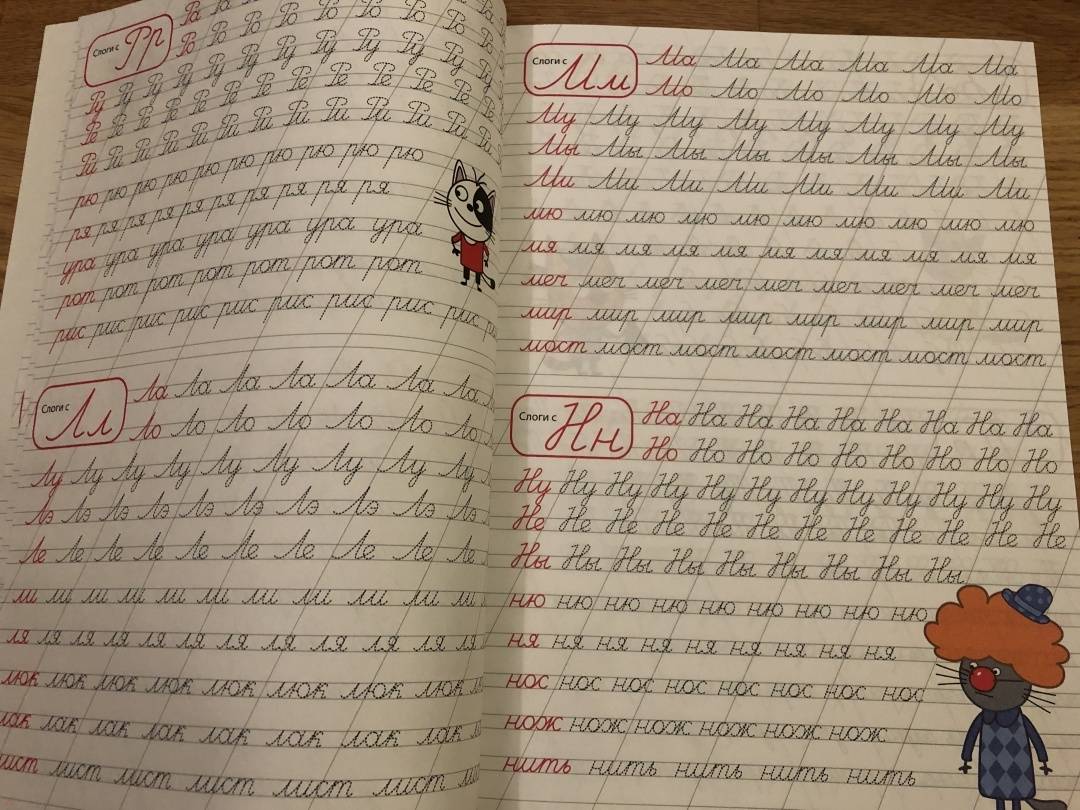 Слоги с Рр
Ра Ра Ра Ра Ра Ра Ра Ра
Ро Ро Ро Ро Ро Ро Ро Ро
Ру Ру Ру Ру Ру Ру Ру Ру Ру Ру Ру
Ре Ре Ре Ре Ре Ре Ре Ре Ре Ре Ре Ре
Ри Ри Ри Ри Ри Ри Ри Ри Ри Ри Ри Ри
рю рю рю рю рю рю рю рю рю рю
ря ря ря ря ря ря ря ря ря ря
ура ура ура ура ура ура ура
рот рот рот рот рот рот рот
рис рис рис рис рис рис рис рис
Слоги с Лл
Ла Ла Ла Ла Ла Ла Ла
Ло Ло Ло Ло Ло Ло Ло Ло
Лу Лу Лу Лу Лу Лу Лу Лу Лу
Лэ Лэ Лэ Лэ Лэ Лэ Лэ Лэ Лэ Лэ
Ле Ле Ле Ле Ле Ле Ле Ле Ле Ле
ли ли ли ли ли ли ли ли ли ли ли
ля ля ля ля ля ля ля ля ля ля ля ля
люк люк люк люк люк люк люк люк
лак лак лак лак лак лак лак лак
лист лист лист лист лист лист
Слоги с Мм
Ма Ма Ма Ма Ма Ма
Мо Мо Мо Мо Мо Мо
Му Му Му Му Му Му Му Му
Мы Мы Мы Мы Мы Мы Мы Мы
Ми Ми Ми Ми Ми Ми Ми Ми
мю мю мю мю мю мю мю мю мю мю
мя мя мя мя мя мя мя мя мя мя мя
меч меч меч меч меч меч меч меч меч
мир мир мир мир мир мир мир мир
мост мост мост мост мост мост мост
Слоги с Нн
На На На На На На На На На
Но Но Но Но Но Но Но Но Но
Ну Ну Ну Ну Ну Ну Ну Ну Ну Ну Ну Ну
Не Не Не Не Не Не Не Не Не Не Не Не
Ны Ны Ны Ны Ны Ны Ны Ны Ны
ню ню ню ню ню ню ню ню ню
ня ня ня ня ня ня ня ня ня
нос нос нос нос нос нос нос нос
нож нож нож нож нож нож
нить нить нить нить нить